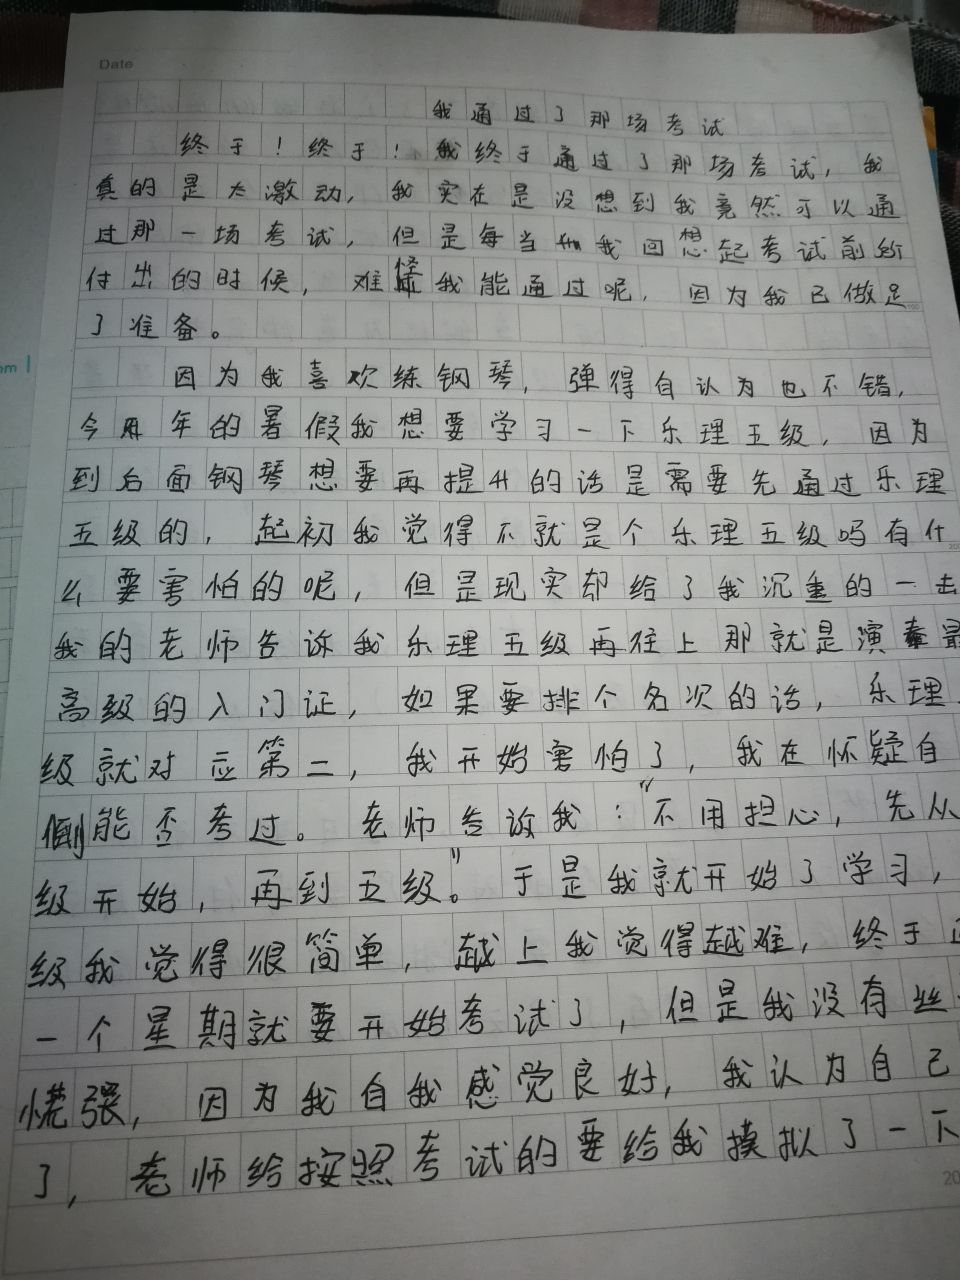 Date
我通过了那场考试
终于!终于!我终于通过了那场考试,我
真的是太激动,我实在是没想到我竟然可以通
过那一场考试,但是每当我回想起考试前所
付出的时候,难怪我能通过呢,因为我已做足
了准备。
因为我喜欢练钢琴,弹得自认为也不错,
今年的暑假我想要学习一下乐理五级,因为
到后面钢琴想要再提升的话是需要先通过乐理
五级的,起初我觉得不就是个乐理五级吗有什
么要害怕的呢,但是现实却给了我沉重的一击
我的老师告诉我乐理五级再往上那就是演奏最
高级的入门证,如果要排个名次的话,乐理
级就对应第二,我开始害怕了,我在怀疑自
能否考过。老师告诉我:“不用担心,先从
级开始,再到五级。”于是我就开始了学习,
级我觉得很简单,越上我觉得越难,终于
一个星期就要开始考试了,但是我没有丝
慌张,因为我自我感觉良好,我认为自己
了,老师给按照考试的要给我摸拟了一下